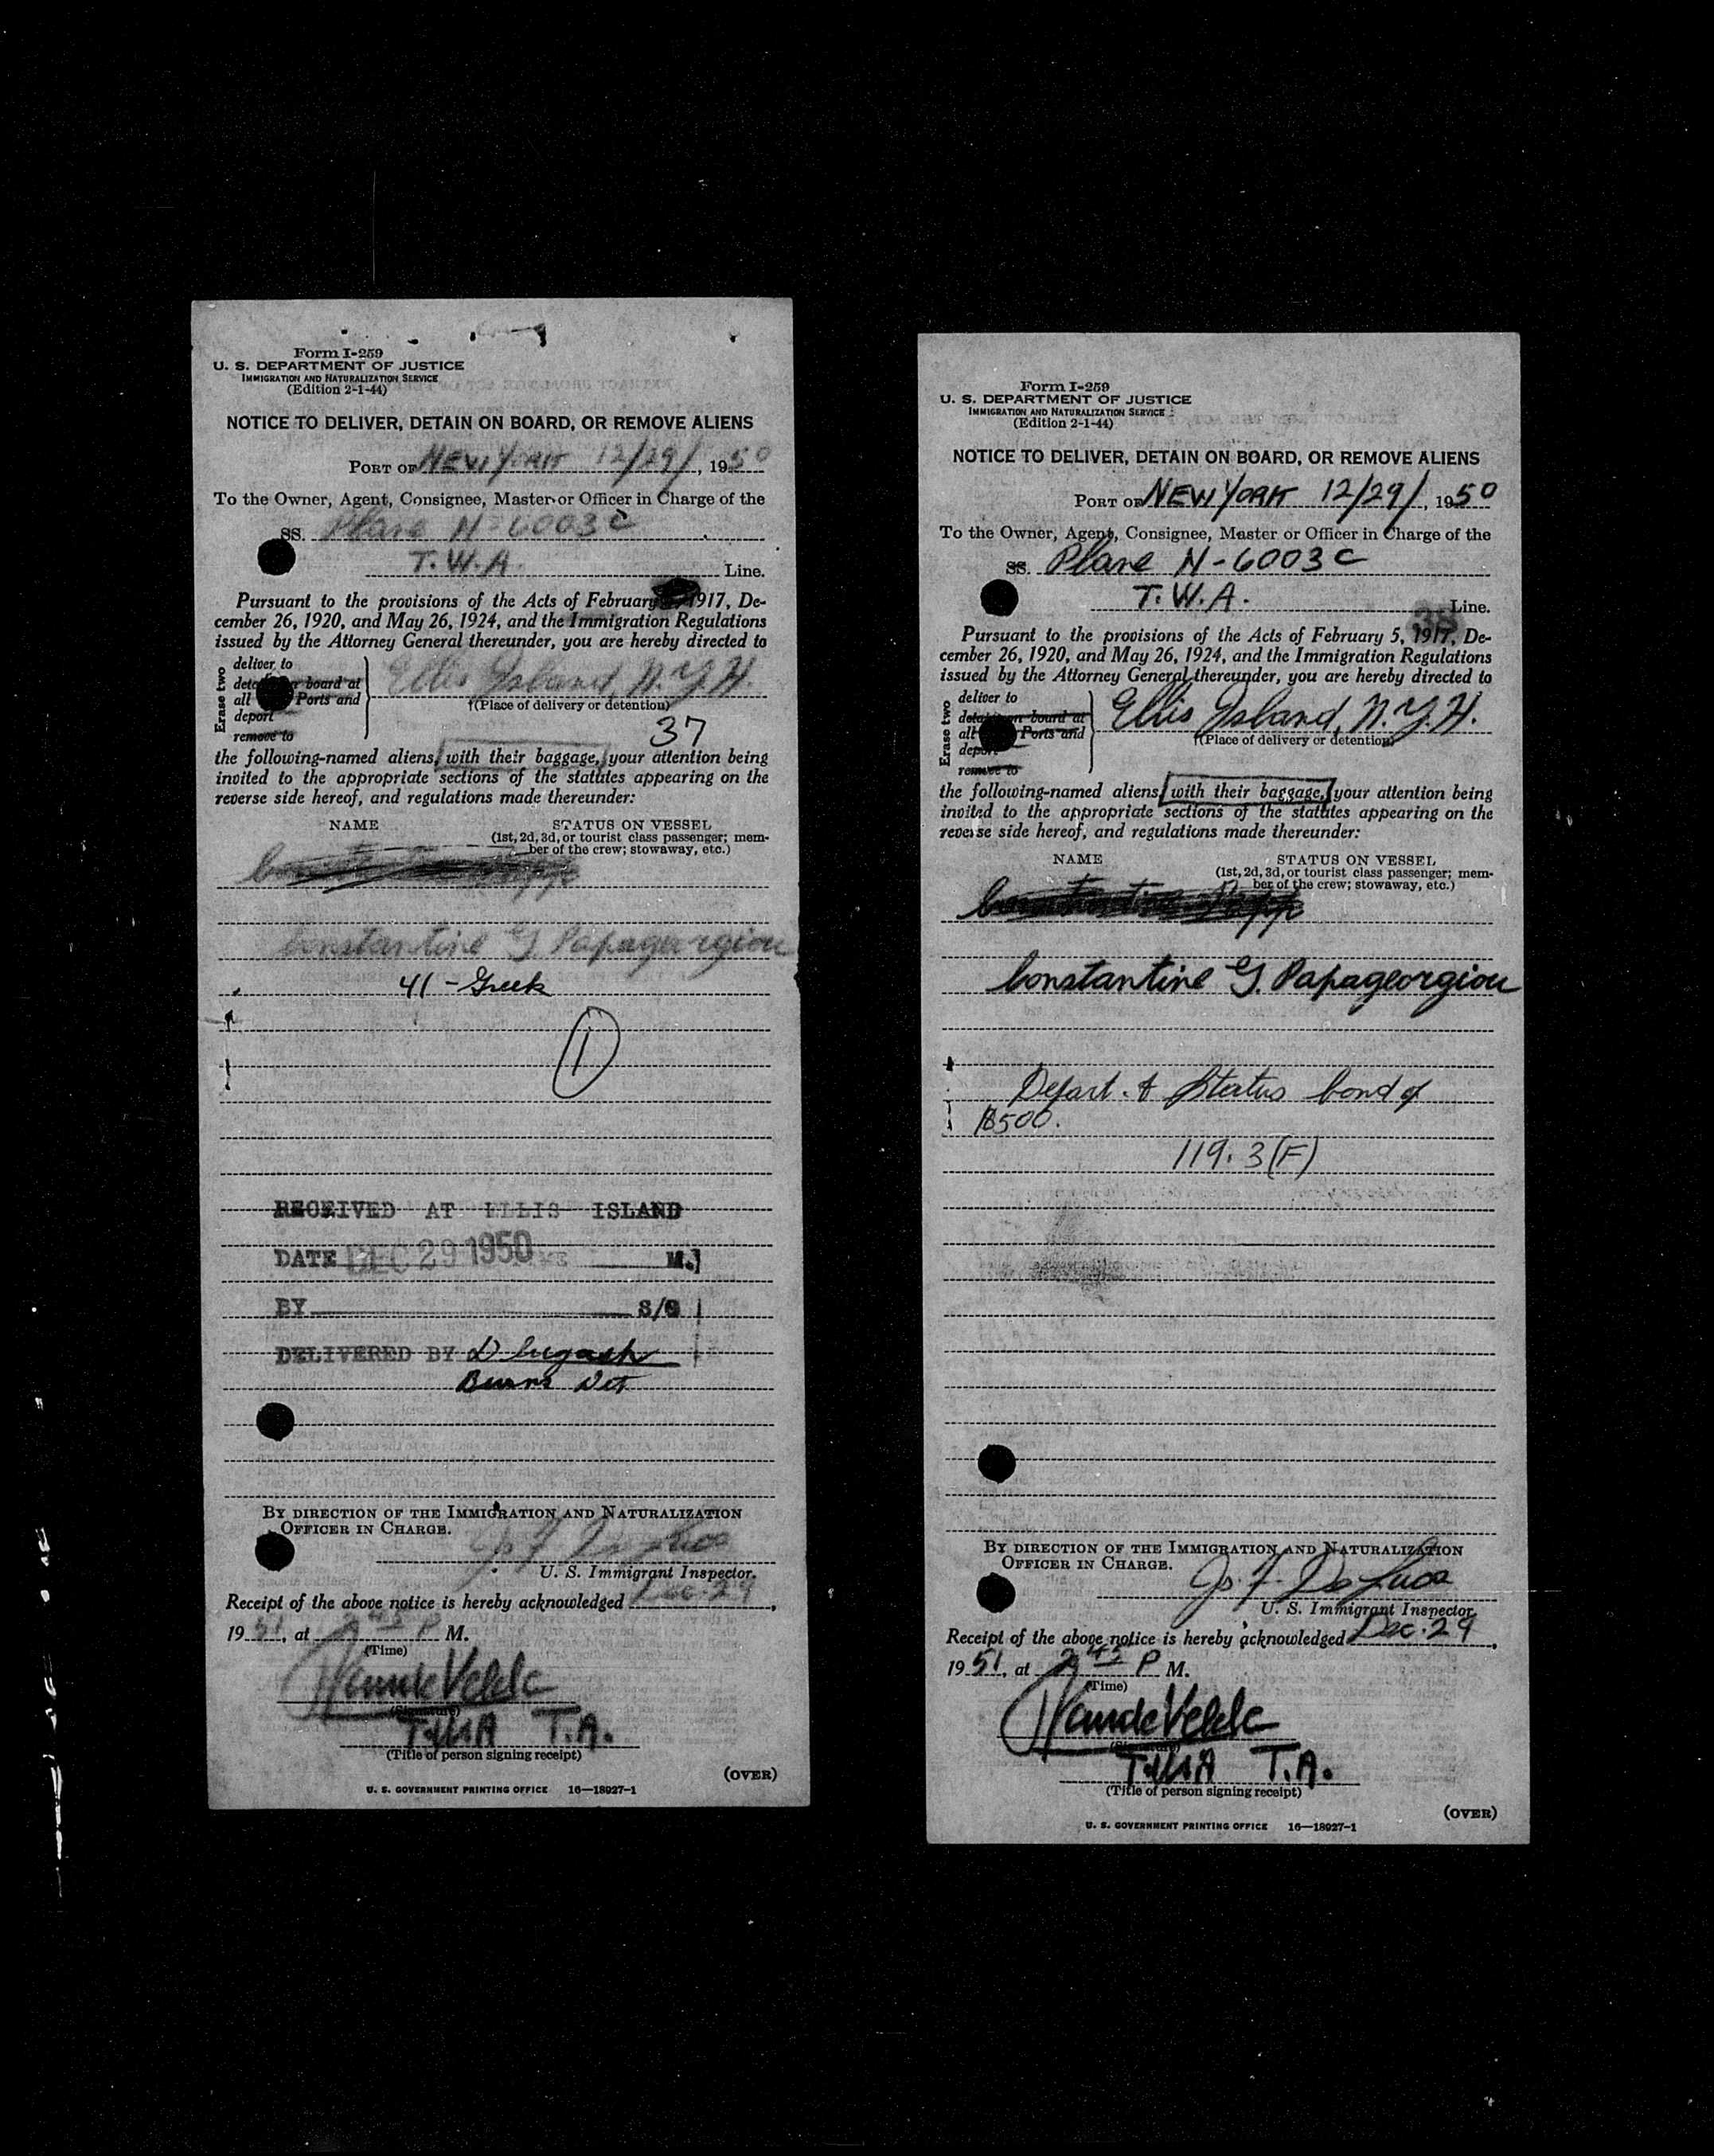 Form I-259
U. S. DEPARTMENT OF JUSTICE
IMMIGRATION AND NATURALIZATION SERVICE
(Edition 2-1-44)
NOTICE TO DELIVER, DETAIN ON BOARD, OR REMOVE ALIENS
PORT OF NEW YORK 12/29/, 1950
To the Owner, Agent, Consignee, Master or Officer in Charge of the
SS. Plane N-6003C
T.W.A. Line.
Pursuant to the provisions of the Acts of February 1917, De-
cember 26, 1920, and May 26, 1924, and the Immigration Regulations
issued by the Attorney General thereunder, you are hereby directed to
Erase two
deliver to
board at
all Ports and
deport
remove to
Ellis Island, N.Y.H.
†(Place of delivery or detention)
37
the following-named aliens, with their baggage, your attention being
invited to the appropriate sections of the statutes appearing on the
reverse side hereof, and regulations made thereunder:
NAME STATUS ON VESSEL
(1st, 2d, 3d, or tourist class passenger; mem-
ber of the crew; stowaway, etc.)
Constantine G. Papageorgiou
41 - Greek
1
RECEIVED AT ELLIS ISLAND
DATE DEC 29 1950 M.
BY S/O
DELIVERED BY Dlugash
Burns Det
BY DIRECTION OF THE IMMIGRATION AND NATURALIZATION
OFFICER IN CHARGE.
U. S. Immigrant Inspector.
Receipt of the above notice is hereby acknowledged Dec. 29,
1951, at 2 45 P M.
(Time)
VandeVelde
(Signature)
TWA T.A.
(Title of person signing receipt)
(OVER)
U. S. GOVERNMENT PRINTING OFFICE 16—18027-1
Form I-259
U. S. DEPARTMENT OF JUSTICE
IMMIGRATION AND NATURALIZATION SERVICE
(Edition 2-1-44)
NOTICE TO DELIVER, DETAIN ON BOARD, OR REMOVE ALIENS
PORT OF NEW YORK 12/29/, 1950
To the Owner, Agent, Consignee, Master or Officer in Charge of the
SS. Plane N-6003C
T.W.A. Line.
38
Pursuant to the provisions of the Acts of February 5, 1917, De-
cember 26, 1920, and May 26, 1924, and the Immigration Regulations
issued by the Attorney General thereunder, you are hereby directed to
Erase two
deliver to
on board at
all Ports and
deport
remove to
Ellis Island, N.Y.H.
†(Place of delivery or detention)
the following-named aliens, with their baggage, your attention being
invited to the appropriate sections of the statutes appearing on the
reverse side hereof, and regulations made thereunder:
NAME STATUS ON VESSEL
(1st, 2d, 3d, or tourist class passenger; mem-
ber of the crew; stowaway, etc.)
Constantine Papp
Constantine G. Papageorgiou
Depart. & Status bond of
$500.
119.3(F)
BY DIRECTION OF THE IMMIGRATION AND NATURALIZATION
OFFICER IN CHARGE.
Jos. F. De Luca
U. S. Immigrant Inspector.
Receipt of the above notice is hereby acknowledged Dec. 29,
1951, at 2 45 P M.
(Time)
VandeVelde
(Signature)
TWA T.A.
(Title of person signing receipt)
(OVER)
U. S. GOVERNMENT PRINTING OFFICE 16—18027-1